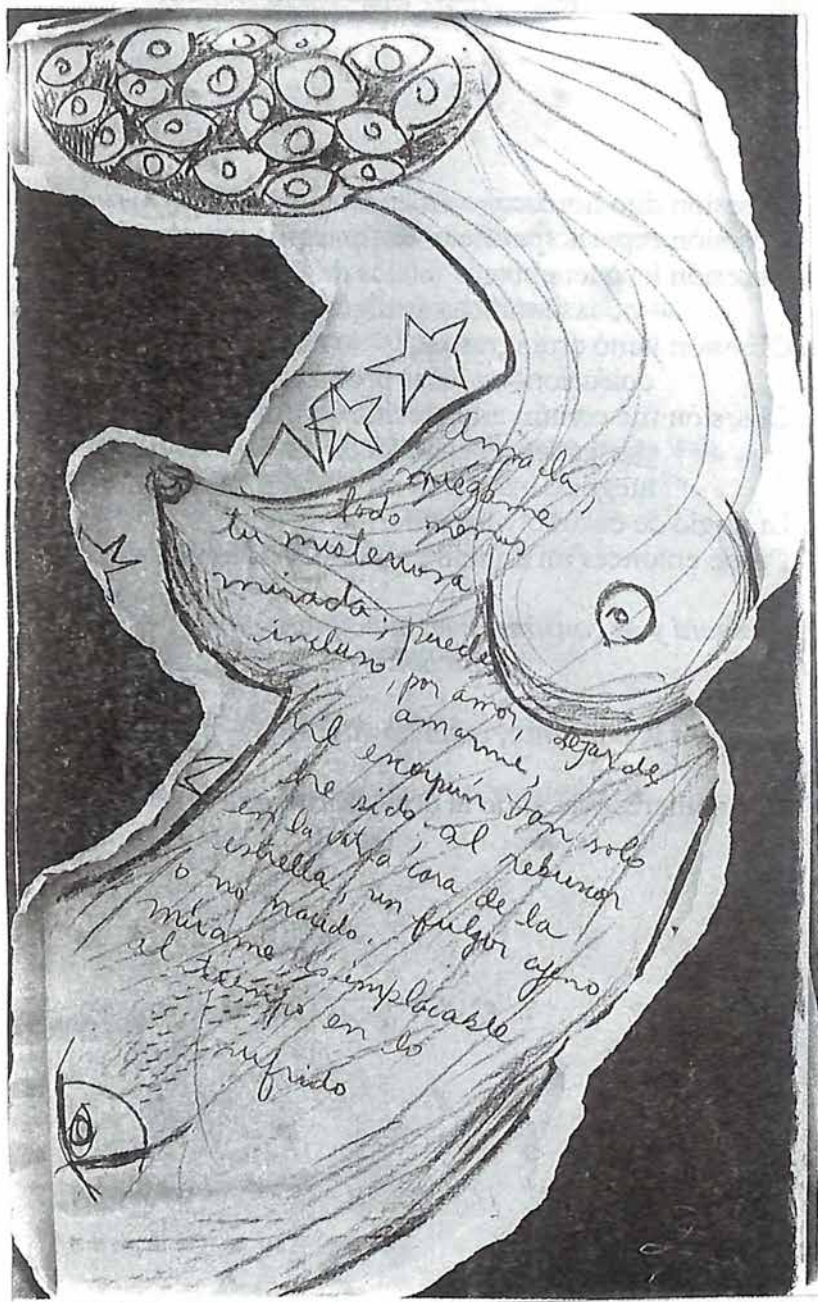 Amada,
niégame
todo menos
tu misteriosa
mirada; puedes
incluso, por amor, dejar de
amarme,
vil escorpión tan solo
he sido al rebuscar
en la otra cara de la
estrella, un fulgor ajeno
o no nacido.
mírame, es implacable
el tiempo en lo
sufrido